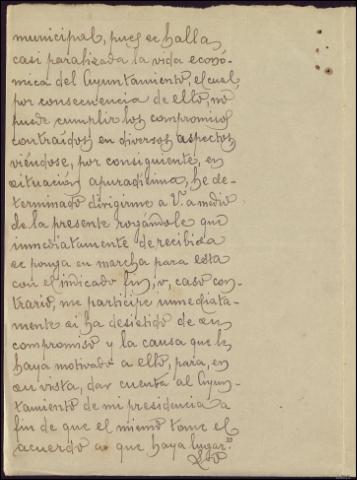 municipal, pues se halla
casi paralizada la vida econó-
mica del Ayuntamiento, el cual
por consecuencia de ello, no
puede cumplir los compromisos
contraídos en diversos aspectos
viéndose, por consiguiente, en
situación apuradísima, he de-
terminado dirigirme a V. a medio
de la presente rogándole que
inmediatamente de recibida
se ponga en marcha para esta
con el indicado fin, o, caso con-
trario, me participe inmediata-
mente si ha desistido de su
compromiso y la causa que le
haya motivado a ello, para, en
su vista, dar cuenta al Ayun-
tamiento de mi presidencia a
fin de que el mismo tome el
acuerdo a que haya lugar.